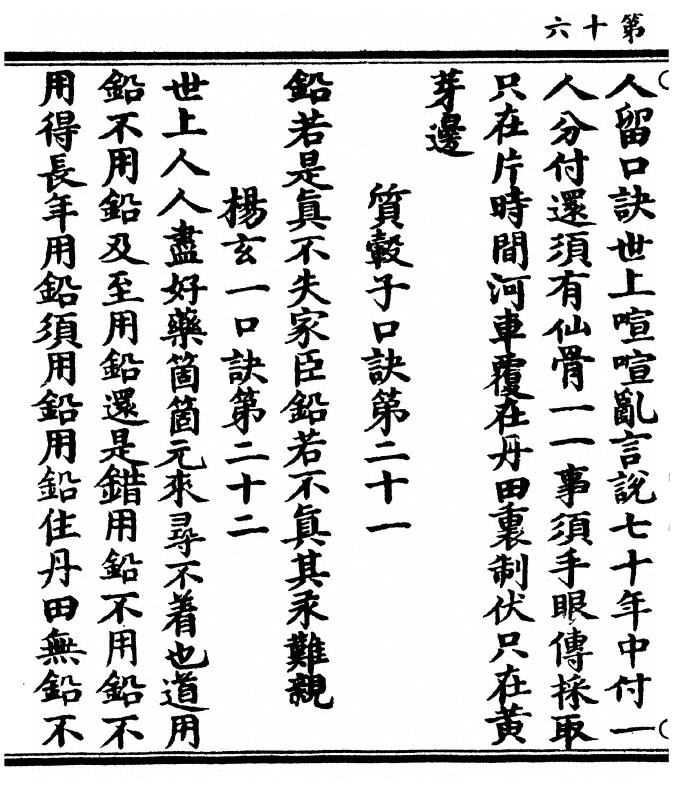 第十六
人留口訣世上喧喧亂言說七十年中付一
人分付還須有仙骨一一事須手眼傳採取
只在片時間河車覆在丹田裏制伏只在黃
芽邊
質轂子口訣第二十一
鉛若是眞不失家臣鉛若不眞其汞難親
楊玄一口訣第二十二
世上人人盡好藥箇箇元來尋不着也道用
鉛不用鉛及至用鉛還是錯用鉛不用鉛不
用得長年用鉛須用鉛用鉛住丹田無鉛不